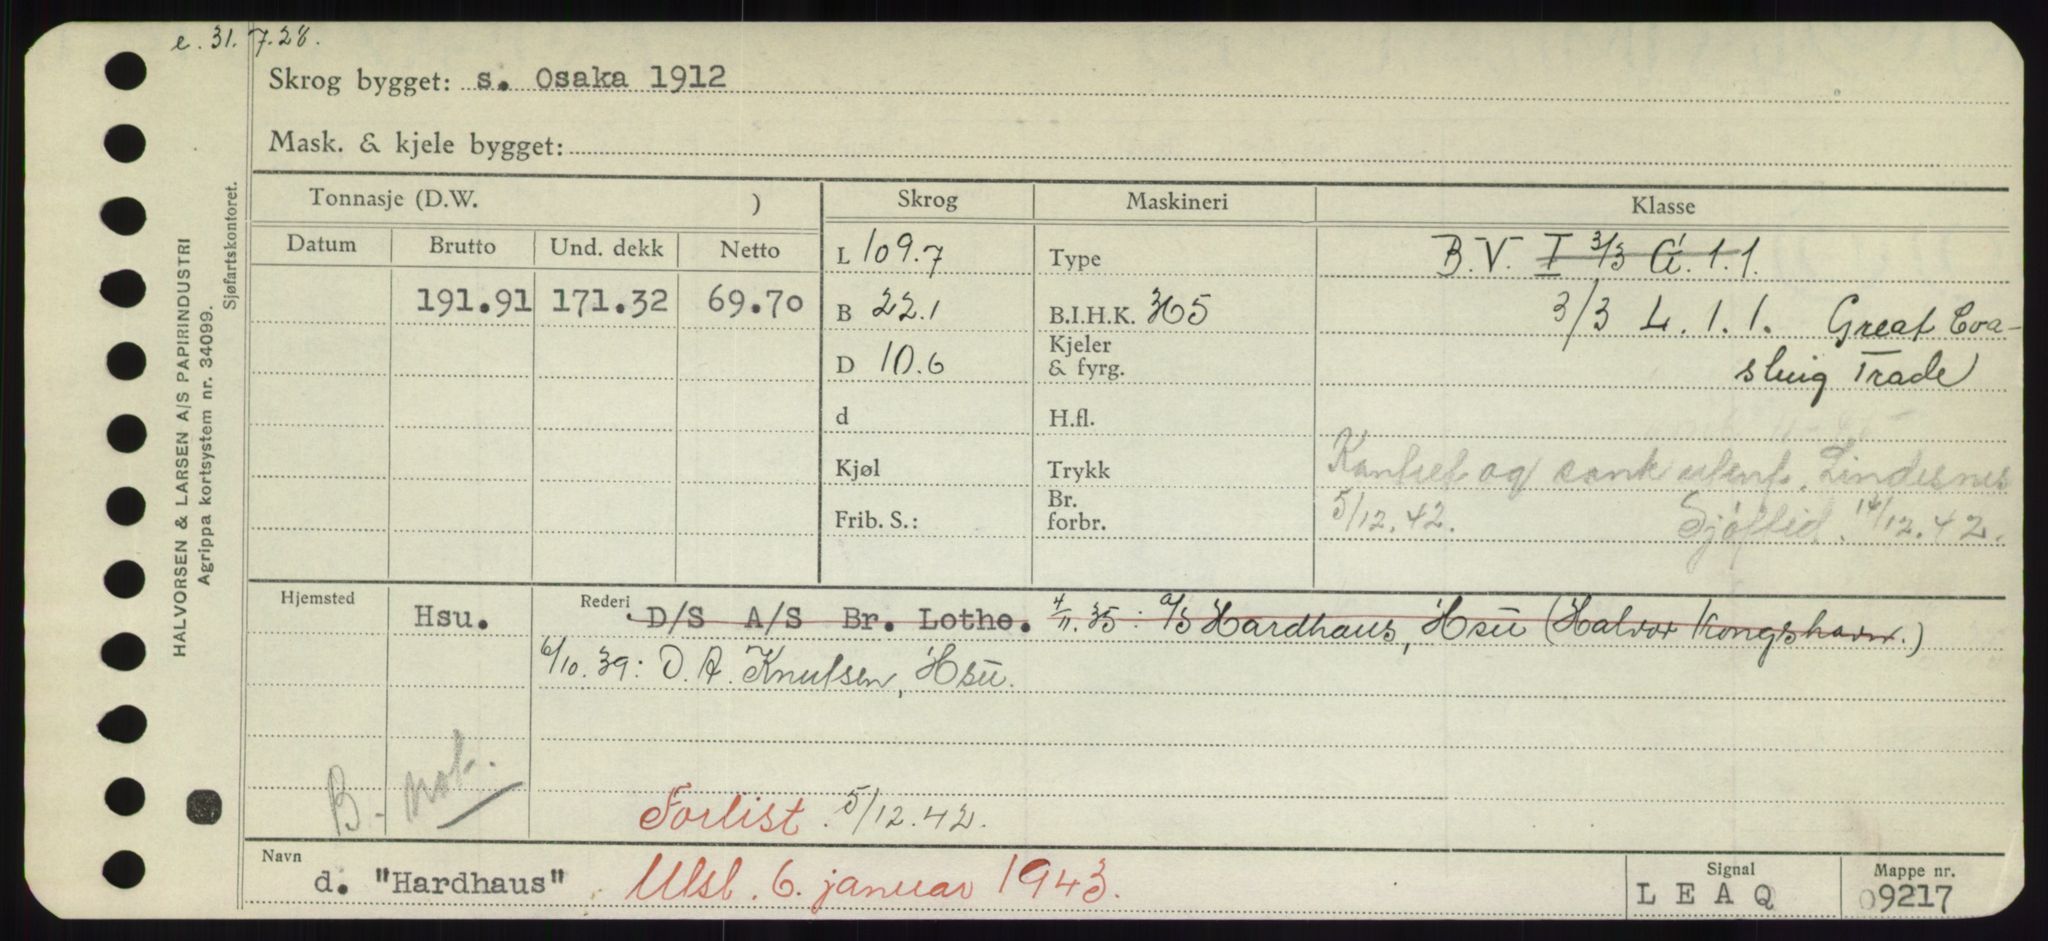 e. 31. 7. 28.
Skrog bygget: s. Osaka 1912
Mask. & kjele bygget:
HALVORSEN & LARSEN A/S PAPIRINDUSTRI
Agrippa kortsystem nr. 34099.
Sjøfartskontoret.
Tonnasje (D.W. ) Skrog Maskineri Klasse
Datum Brutto Und. dekk Netto L 109.7 Type B.V. I 3/3 G. 1. 1.
191.91 171.32 69.70 B 22.1 B.I.H.K. 365 3/3 L. 1. 1. Great Coa-
D 10.6 Kjeler & fyrg. sting Trade
d H.fl.
Kjøl Trykk Kantret og sank utenf. Lindesnes
Frib. S.: Br. forbr. 5/12. 42. Sjøftid. 14/12. 42.
Hjemsted Hsu. Rederi D/S A/S Br. Lothe. 4/11. 35: A/S Hardhaus, Hsu (Halvor Kongshavn.)
6/10. 39: O. A. Knutsen, Hsu.
B. not.
Forlist. 5/12. 42.
Navn d. "Hardhaus" Utsl. 6. januar 1943.
Signal L E A Q
Mappe nr. 09217